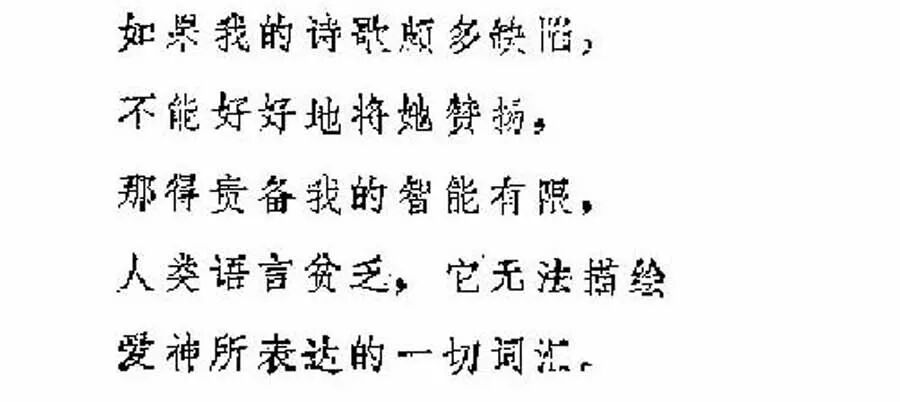 如果我的诗歌颇多缺陷，
不能好好地将她赞扬，
那得责备我的智能有限，
人类语言贫乏，它无法描绘
爱神所表达的一切词汇。